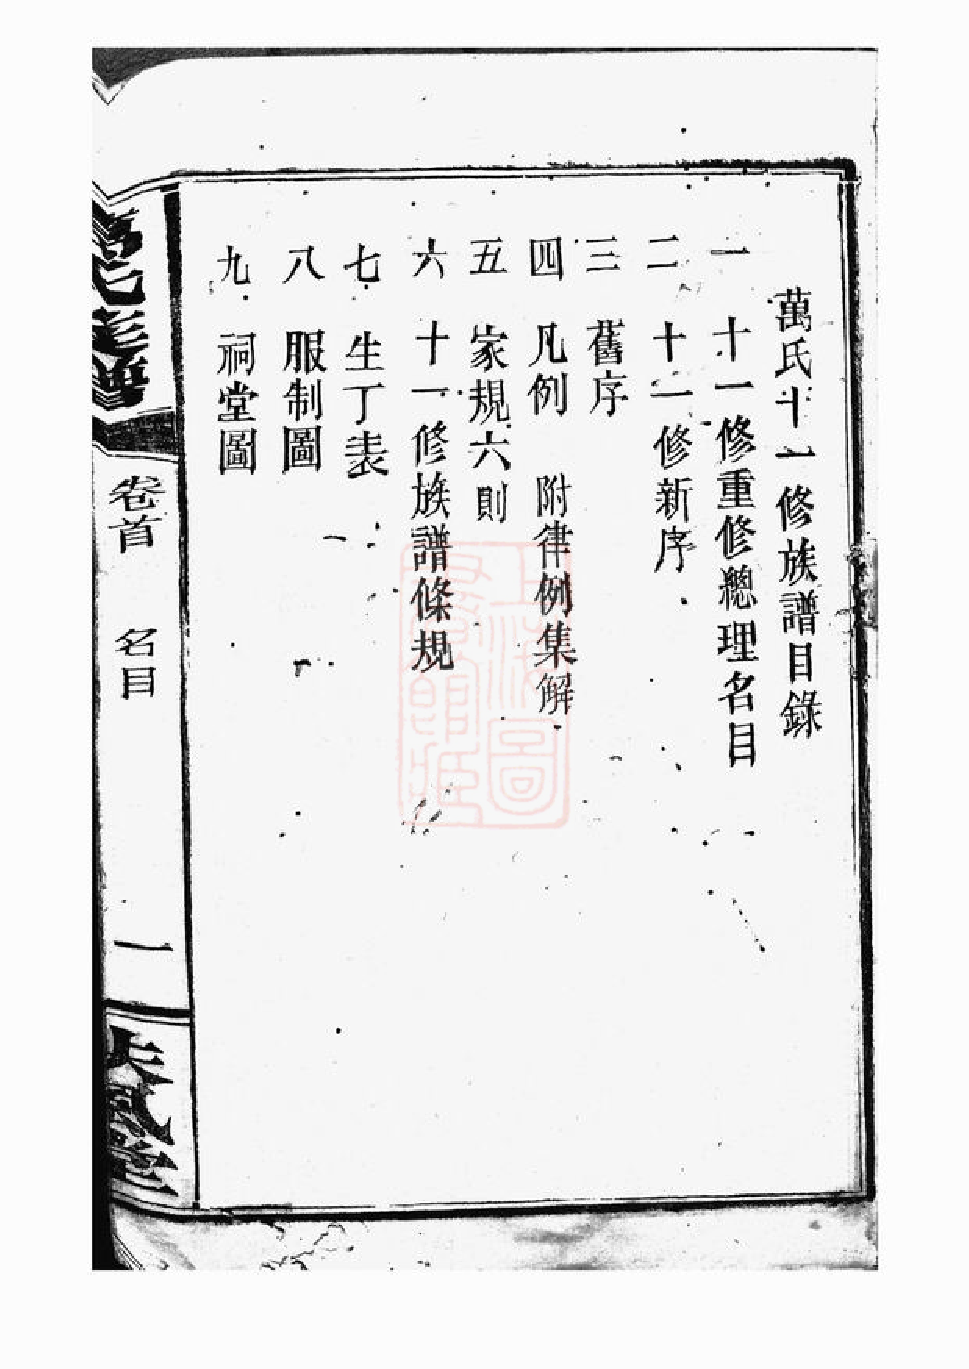 萬氏十一修族譜目錄
一 十一修重修總理名目
二 十一修新序
三 舊序
四 凡例 附律例集解
五 家規六則
六 十一修族譜條規
七 生丁表
八 服制圖
九 祠堂圖
萬氏族譜
卷首 名目 一
扶風堂
上海圖
書館藏